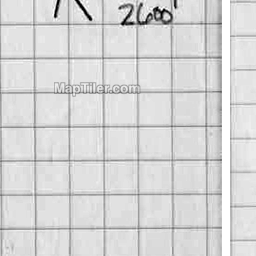 2600'
MapTiler.com